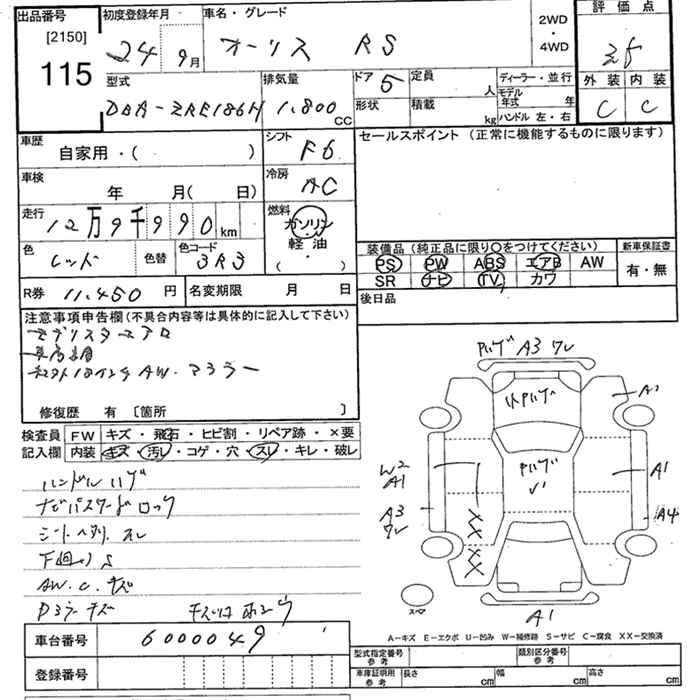 出品番号
[2150]
115
初度登録年月
24 9月
車名・グレード
オーリス RS
2WD
・
4WD
評価点
外装 内装
C C
型式
DBA-ZRE186H
排気量
1,800 CC
ドア 5
形状
定員 人
積載 kg
ディーラー・並行
モデル年式 年
ハンドル 左・右
車歴
自家用・( )
シフト
F6
セールスポイント (正常に機能するものに限ります)
車検
年 月( 日)
冷房
AC
走行
12万9千990km
燃料
ガソリン
軽油
( )
色
レッド
色替
色コード
3R3
装備品(純正品に限り○をつけてください)
PS PW ABS エアB AW
SR ナビ TV カワ
新車保証書
有・無
R券 11,450 円
名変期限 月 日
後日品
注意事項申告欄(不具合内容等は具体的に記入して下さい)
モデリスタエアロ
車高調
AW.マフラー
修復歴 有 〔箇所 〕
検査員記入欄
FW キズ・飛石・ヒビ割・リペア跡・×要
内装 キズ・汚レ・コゲ・穴・スレ・キレ・破レ
ハンドルハゲ
ナビパスワードロック
シートヘタリ.スレ
下回りS
AW.C.キズ
Dミラーキズ
車台番号 6000049
登録番号
ハゲ A3 ワレ
ハゲ
W2
A1
A3
ワレ
A1
A4
XX
XX
A1
A-キズ E-エクボ U-凹み W-補修跡 S-サビ C-腐食 XX-交換済
型式指定番号
参考
類別区分番号
参考
車庫証明用
参考
長さ cm 幅 cm 高さ cm